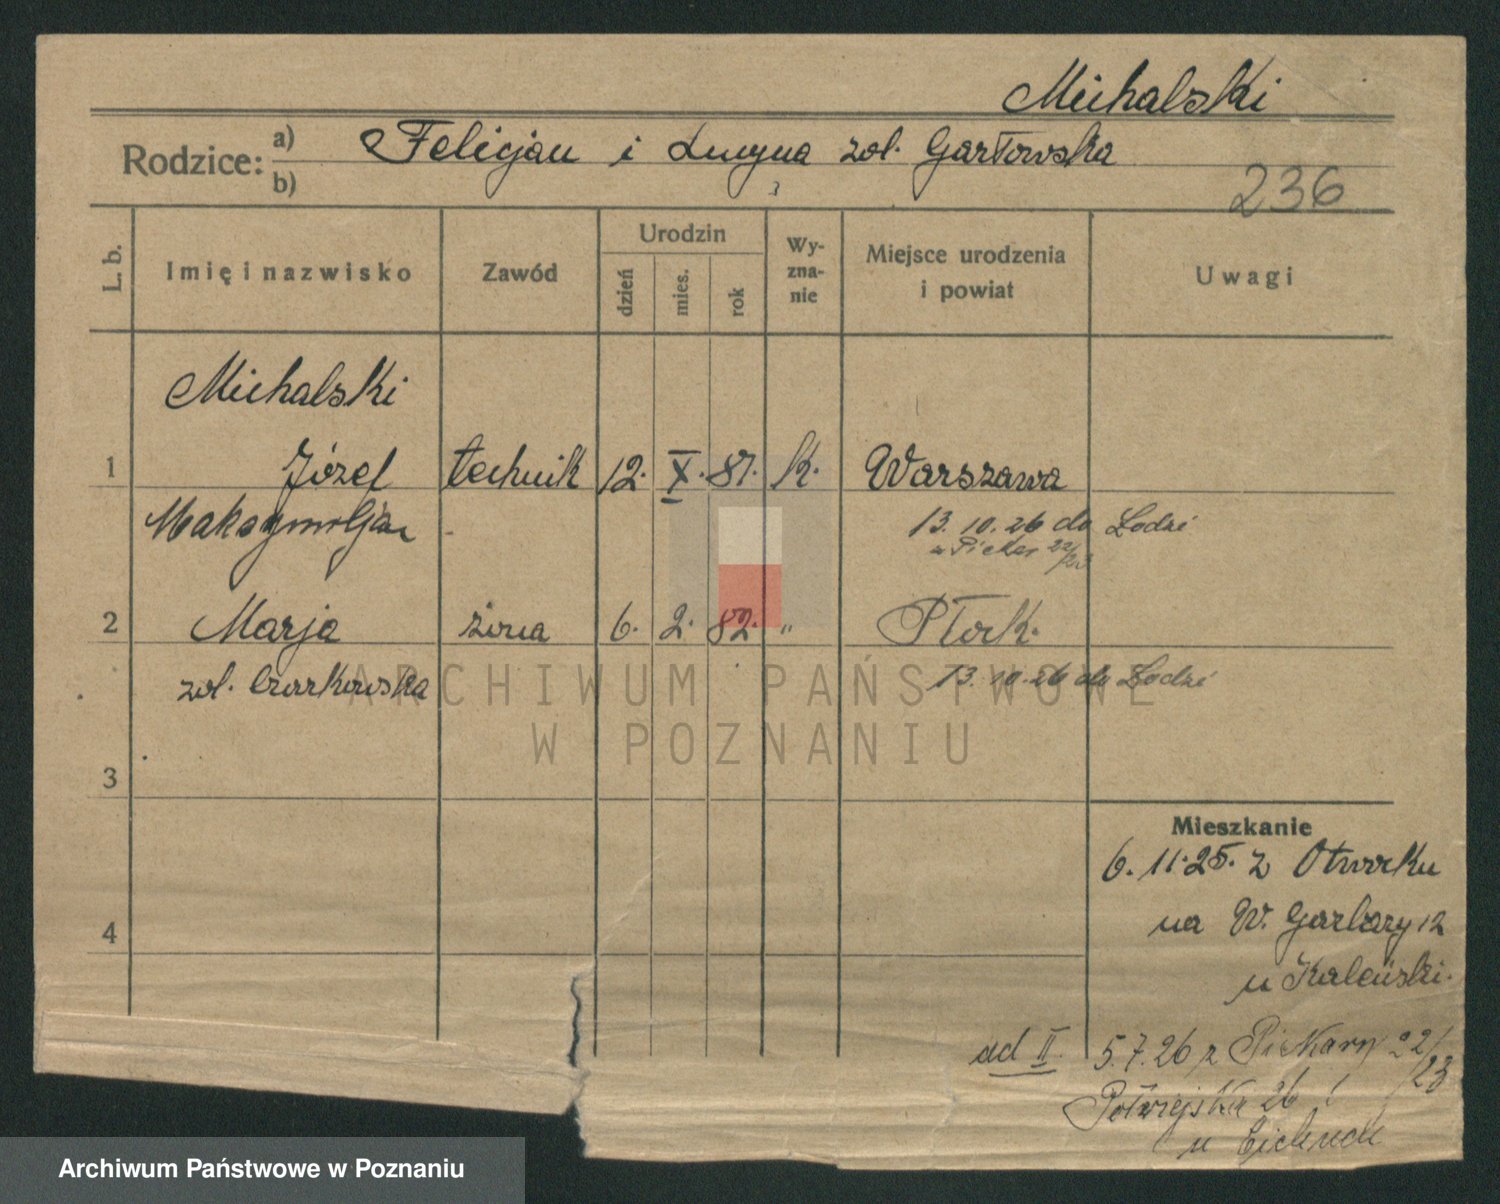 Michalski
Rodzice: a) Felicjan i Lucyna zol. Garłowska
b)
236
L. b.
Imię i nazwisko
Zawód
Urodzin
dzień
mies.
rok
Wy-
zna-
nie
Miejsce urodzenia
i powiat
Uwagi
Michalski
1 Józef technik 12. X. 87. k. Warszawa
Maksymiljan - 13. 10. 26 do Lodzi
Pieker 22/23
2 Marja żona 6. 2. 82. " Płock.
zol. Czarkowska 13. 10. 26 do Lodzi
ARCHIWUM PAŃSTWOWE
W POZNANIU
3
Mieszkanie
6. 11. 25. z Otwocku
na W. Garbary 12
4
u Kaleński.
ad II. 5. 7. 26 z Piekary 22/23
Półwiejska 26
u
Archiwum Państwowe w Poznaniu